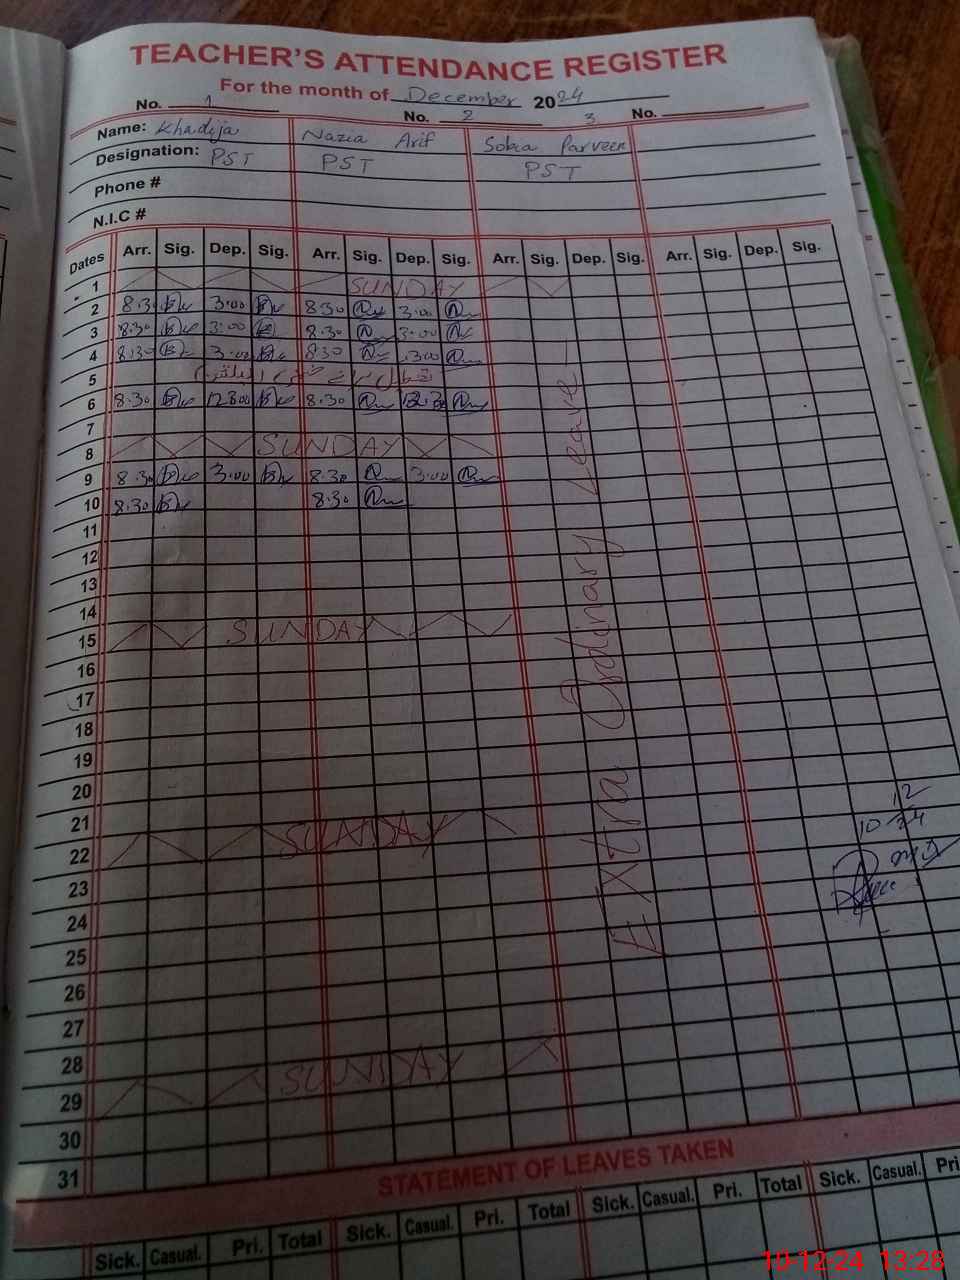 TEACHER'S ATTENDANCE REGISTER
For the month of December 2024
No. 1 No. 2 3 No.
Name: Khadija Nazia Arif Sobia Parveen
Designation: PST PST PST
Phone #
N.I.C #
Dates Arr. Sig. Dep. Sig. Arr. Sig. Dep. Sig. Arr. Sig. Dep. Sig. Arr. Sig. Dep. Sig.
1 SUNDAY
2 8.30 3.00 8.30 3.00
3 8.30 3.00 8.30 3.00
4 8.30 3.00 8.30 3.00
5
6 8.30 8.30
7
8 SUNDAY
9 8.30 3.00 8.30 3.00
10 8.30 8.30
11
12
13
14
15 SUNDAY
16
17
18
19
20
21
22 SUNDAY
23
24
25
26
27
28
29 SUNDAY
30
31
Extra Ordinary Leave
10/12/24
STATEMENT OF LEAVES TAKEN
Sick. Casual. Pri. Total Sick. Casual. Pri. Total Sick. Casual. Pri. Total Sick. Casual. Pri
10-12-24 13:28